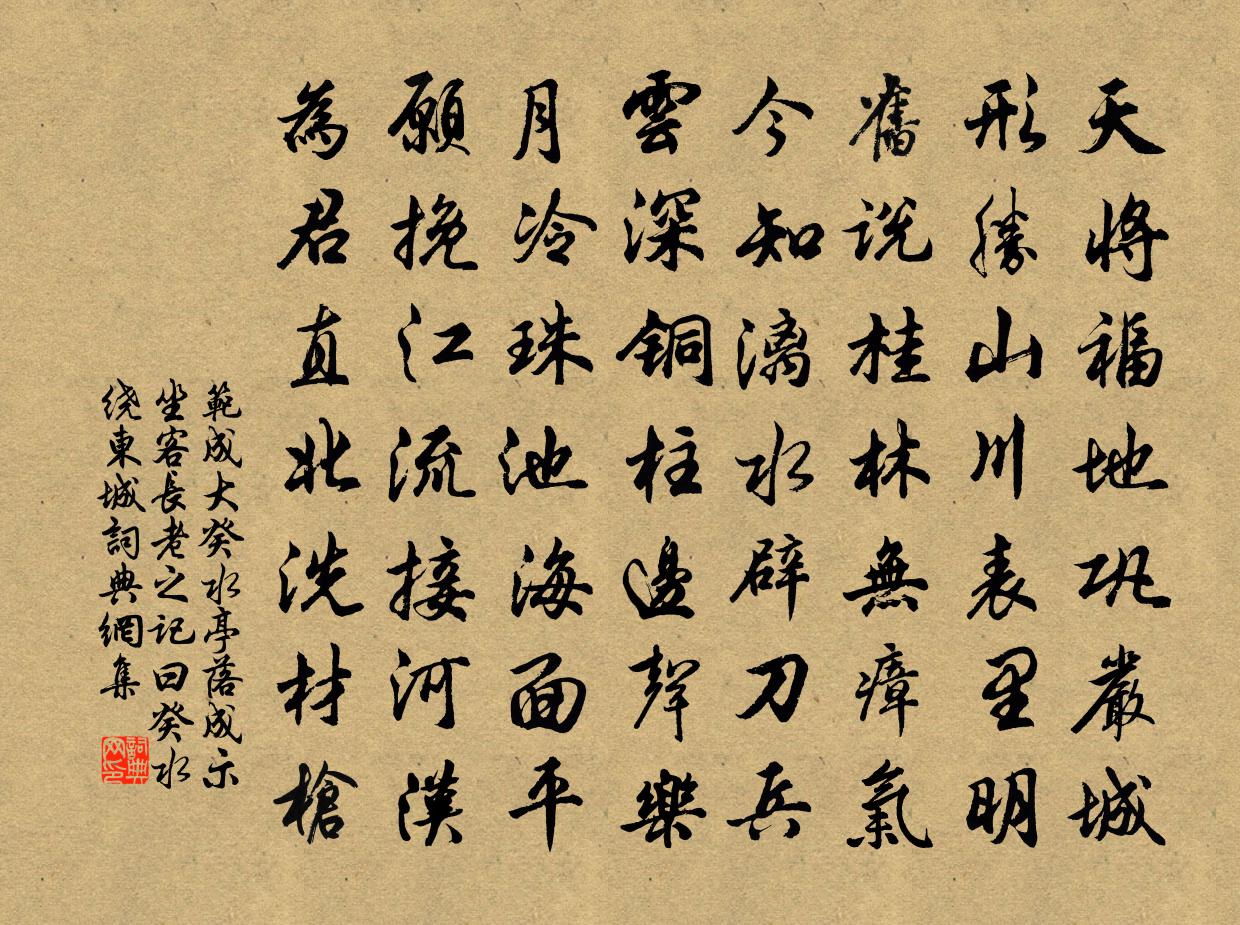 天將福地巩嚴城
形勝山川表里明
舊説桂林無瘴氣
今知漓水辟刀兵
雲深銅柱邊聲樂
月冷珠池海面平
願挽江流接河漢
為君直北洗材槍
範成大癸水亭落成示
坐客長老之記曰癸水
绕東城詞典網集
詞典网印